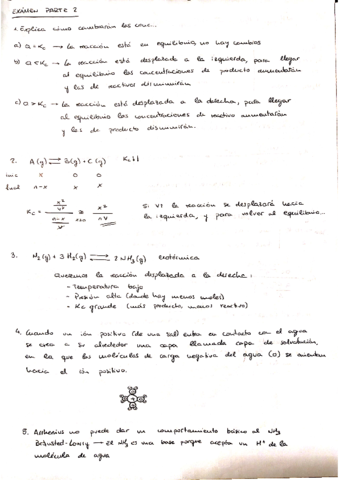 EXAMEN PARTE 2
1. Explica cómo cambiarán las conc...
a) Q = Kc → la reacción está en equilibrio, no hay cambios
b) Q < Kc → la reacción está desplazada a la izquierda, para llegar
al equilibrio las concentraciones de producto aumentarán
y las de reactivo disminuirán
c) Q > Kc → la reacción está desplazada a la derecha, para llegar
al equilibrio las concentraciones de reactivo aumentarán
y las de producto disminuirán.
2. A(g) ⇌ B(g) + C(g) Kc↓↓
inic n 0 0
final n-x x x
Kc = ≅ si V↑ la reacción se desplazará hacia
la izquierda, y para volver al equilibrio...
3. N2(g) + 3 H2(g) ⇌ 2 NH3(g) exotérmica
Queremos la reacción desplazada a la derecha:
- Temperatura baja
- Presión alta (donde hay menos moles)
- Kc grande (más producto, menos reactivo)
4. Cuando un ión positivo (de una sal) entra en contacto con el agua
se crea a su alrededor una capa llamada capa de solvatación,
en la que las moléculas de carga negativa del agua (O) se orientan
hacia el ión positivo.
5. Arrhenius no puede dar un comportamiento básico al NH3
Brönsted-Lowry → el NH3 es una base porque acepta un H+ de la
molécula de agua